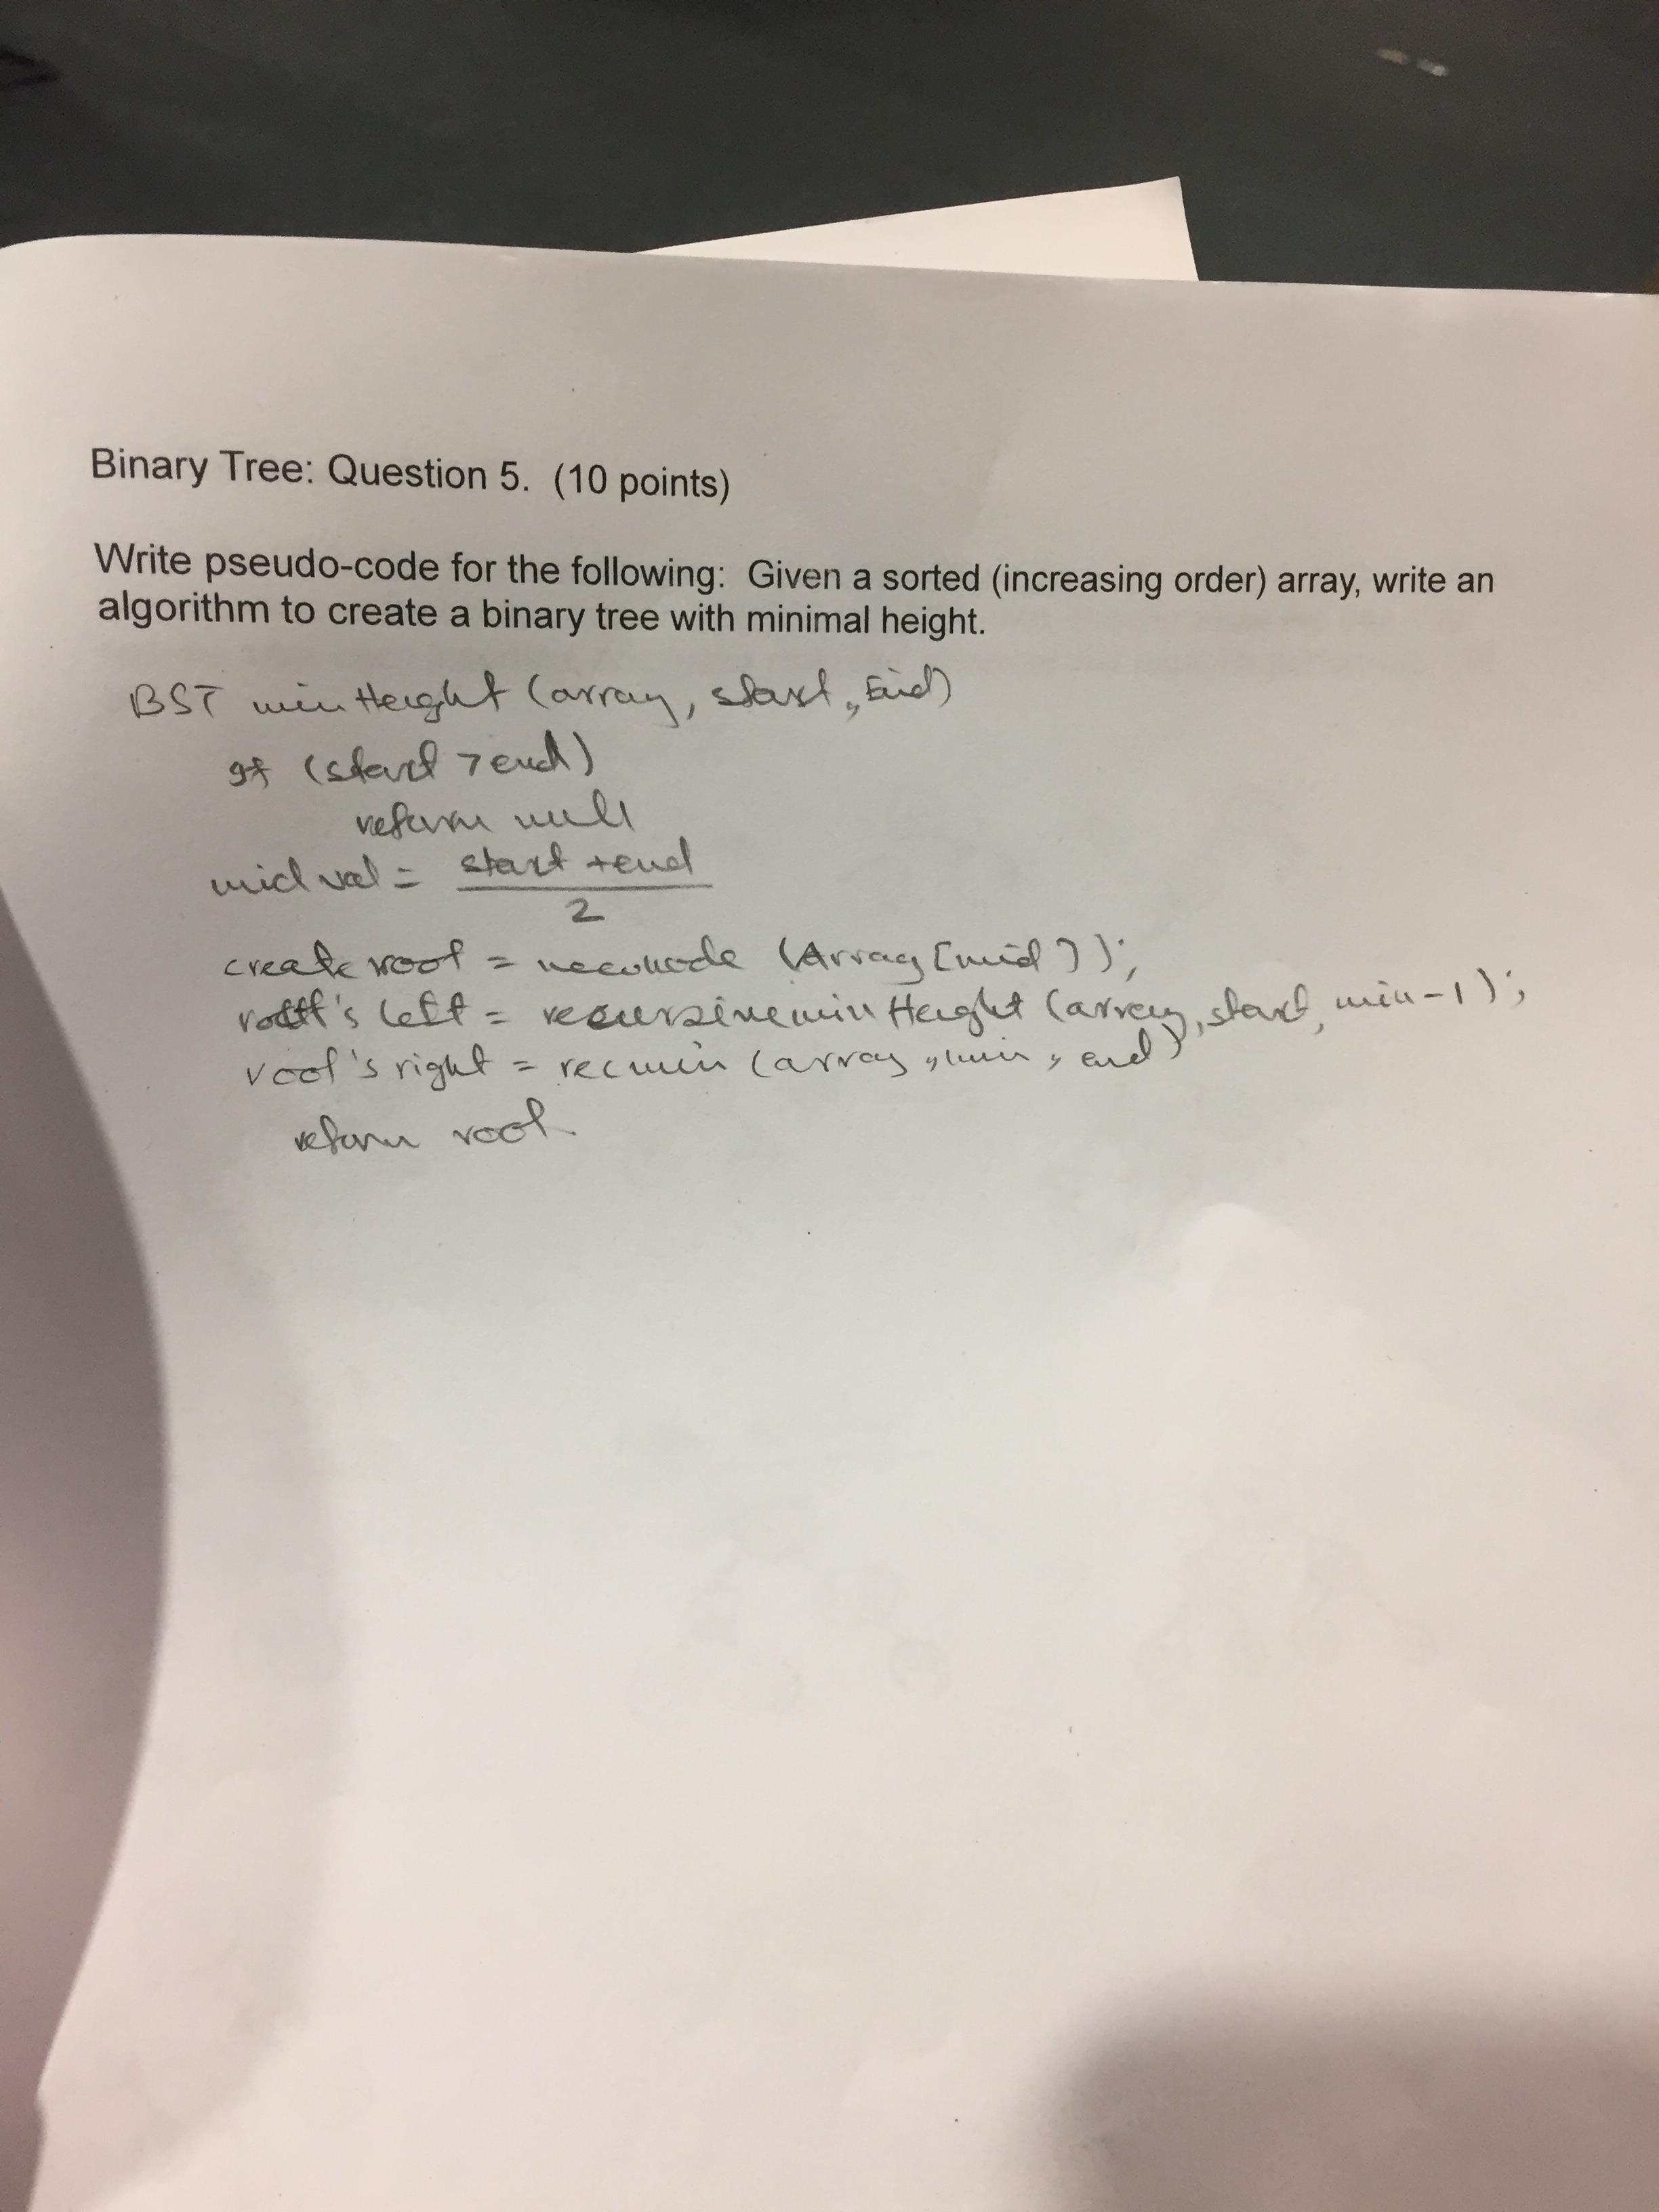 Binary Tree: Question 5. (10 points)
Write pseudo-code for the following: Given a sorted (increasing order) array, write an
algorithm to create a binary tree with minimal height.
BST minHeight (array, start, End)
If (start > end)
return null
mid val = start + end
2
create root = newnode (Array [mid]);
root's left = recursiveminHeight (array), start, min-1);
root's right = recmin (array, min, end),
return root.